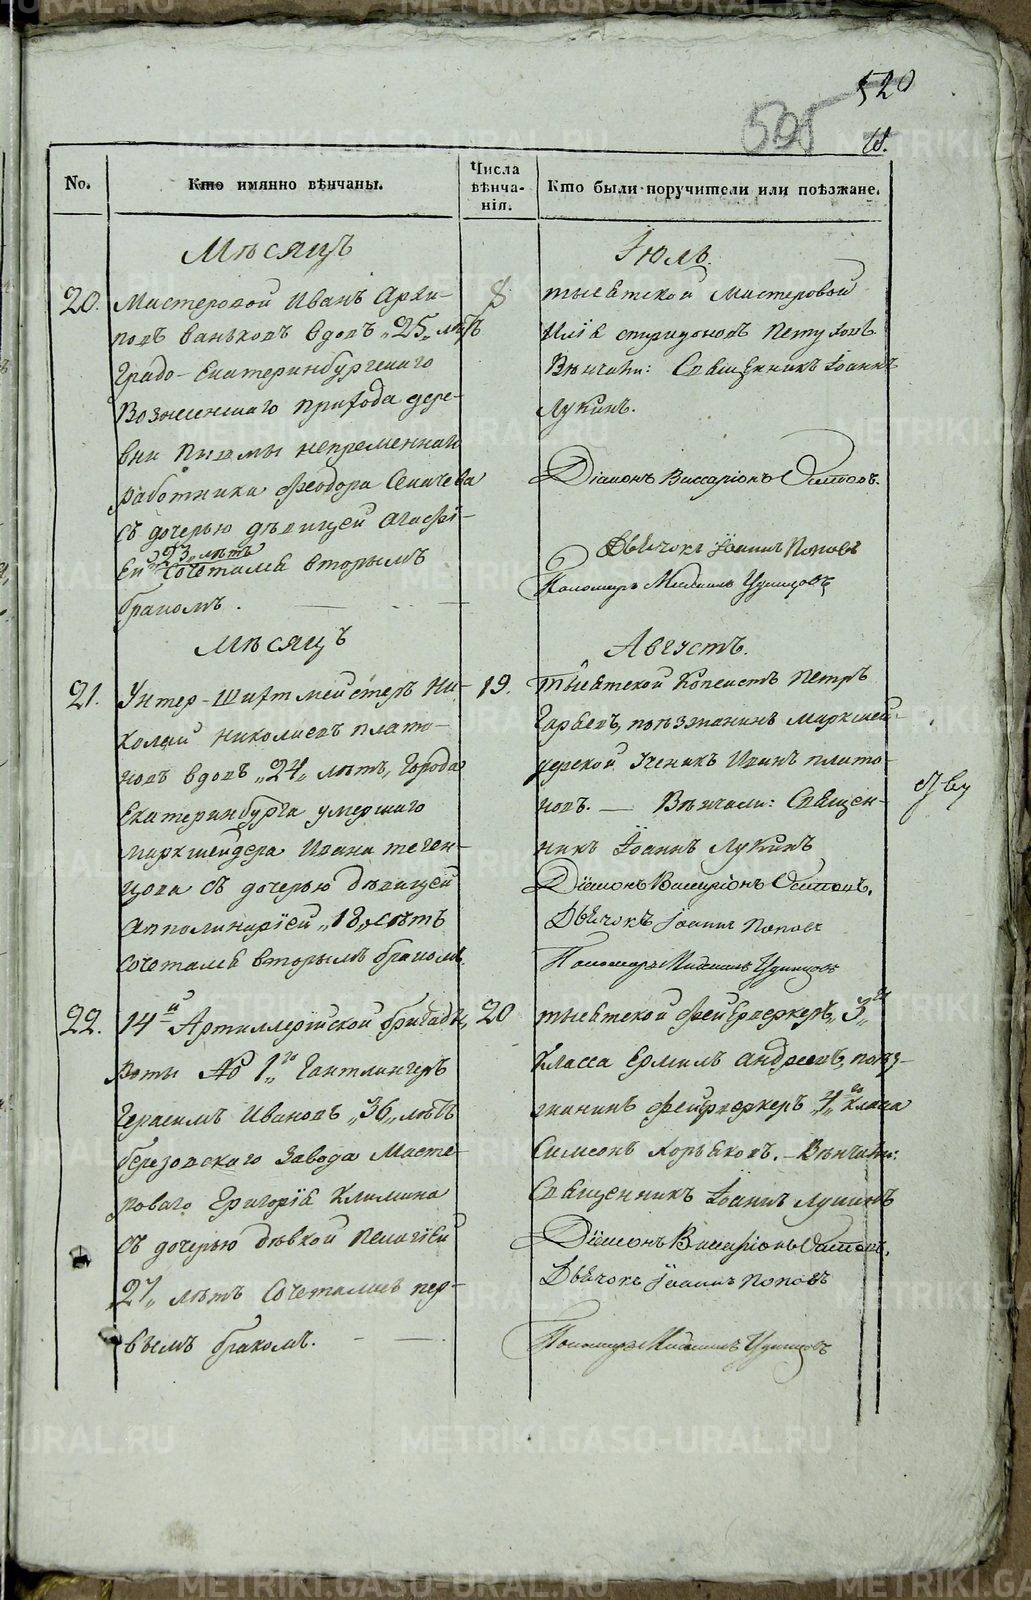 METRIKI.GASO-URAL.RU
520
505
No.
Кто имянно вѣнчаны.
Числа вѣнча-нія.
Кто были поручители или поѣзжане.
Мѣсяцъ
Іюль.
20.
Мастеровой Иванъ Архи-
повъ Ваньковъ вдовъ „25„ лѣтъ
Градо-Екатеринбургскаго
Вознесенскаго прихода дере-
вни Пышмы непременнаго
работника Феодора
съ дочерью дѣвицей Агафі-
ей „23„ лѣтъ
Сочетался вторымъ
бракомъ.
8
Мастеровой
Илія Спиридоновъ Петуховъ
Вѣнчали: Священникъ Іоаннъ
Лукинъ.
Діаконъ Виссаріонъ
Дьячокъ Іоаннъ Поповъ
Пономарь Михаилъ
Мѣсяцъ
Августъ.
21.
Унтер-Шихтмейстеръ Ни-
колай Николаевъ Плато-
новъ вдовъ „24„ лѣтъ, Города
Екатеринбурга умершаго
Маркшейдера Ивана
съ дочерью дѣвицей
Апполинаріей „18„ лѣтъ
Сочетался вторымъ бракомъ.
19.
Копеистъ Петръ
поѣзжанинъ Маркшей-
дерской Ученикъ Иванъ Плато-
новъ. — Вѣнчали: Священ-
никъ Іоаннъ Лукинъ
Діаконъ Виссаріонъ
Дьячокъ Іоаннъ Поповъ
Пономарь Михаилъ
22.
14й Артиллерійской бригады,
роты No 1го Гантлангеръ
Герасимъ Ивановъ „36„ лѣтъ
Березовскаго Завода Масте-
роваго Григорія Климина
съ дочерью дѣвкой Пелагіей
„27„ лѣтъ Сочетались пер-
вымъ бракомъ.
20
Фейерверкеръ „3го„
Класса Ермилъ Андреевъ, поѣз-
жанинъ Фейерверкеръ „4го„ Класса
Симеонъ Хорьковъ. — Вѣнчали:
Священникъ Іоаннъ Лукинъ
Діаконъ Виссаріонъ
Дьячокъ Іоаннъ Поповъ
Пономарь Михаилъ